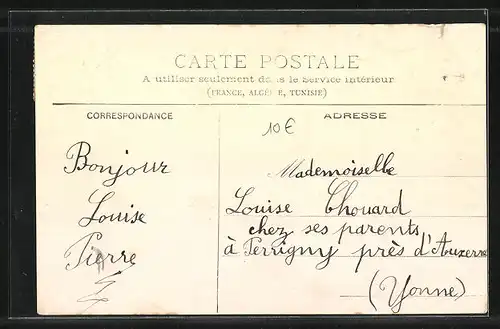 CARTE POSTALE
A utiliser seulement dans le Service intérieur
(FRANCE, ALGÉRIE, TUNISIE)
CORRESPONDANCE
ADRESSE
10€
Bonjour
Louise
Pierre
Mademoiselle
Louise Chouard
chez ses parents
à Perrigny près d'Auxerre
(Yonne)